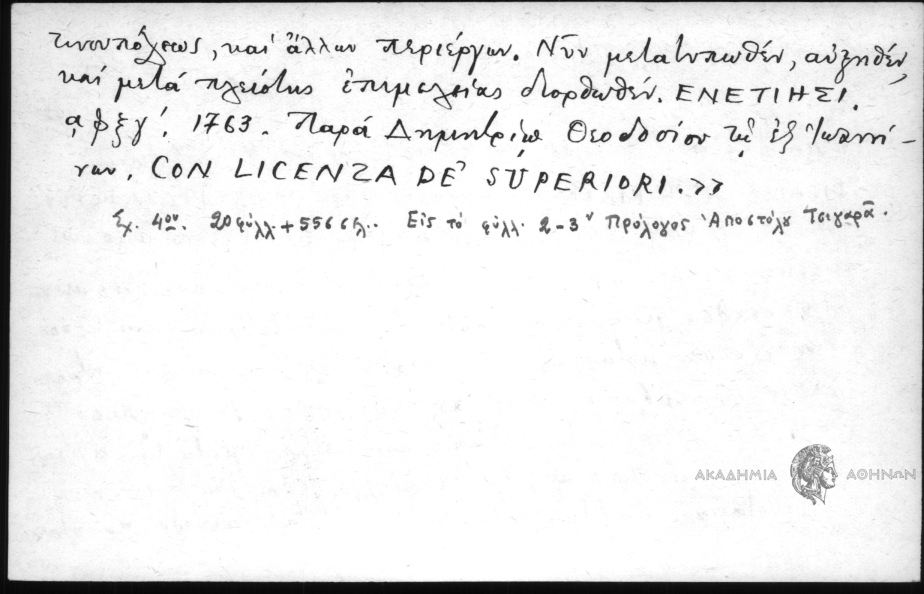 τινουπόλεως, καί ἄλλων περιέργων. Νῦν μετατυπωθέν, αὐξηθέν,
καί μετά πλείστης ἐπιμελείας διορθωθέν. ΕΝΕΤΙΗΣΙ.
͵αψξγ΄. 1763. Παρά Δημητρίῳ Θεοδοσίου τῷ ἐξ Ἰωαννί-
νων. CON LICENZA DE' SUPERIORI.»
Σχ. 4ον. 20 φύλλ. + 556 σελ. Εἰς τό φύλλ. 2-3ν Πρόλογος Ἀποστόλου Τσιγαρᾶ.
ΑΚΑΔΗΜΙΑ ΑΘΗΝΩΝ